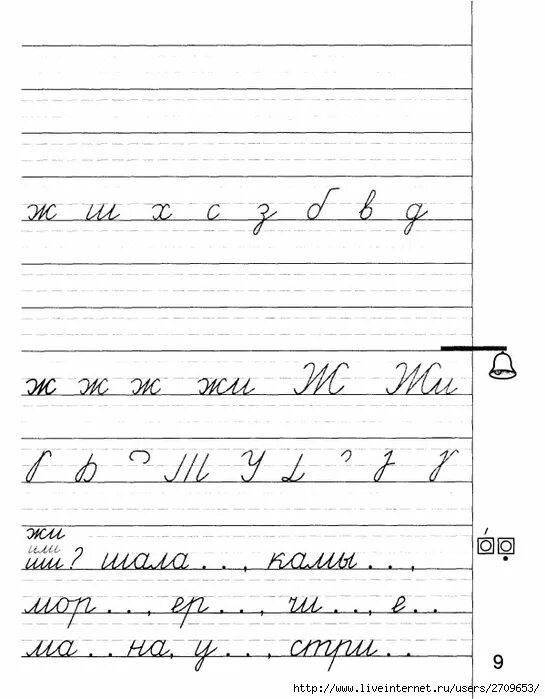 ж ш х с з б в д
ж ж ж жи Ж Жи
жи
или
ши? шала . . , камы . . ,
мор . . , ер . . , чи . . , е . .
ма . . на, у . . , стри . .
9
http://www.liveinternet.ru/users/2709653/